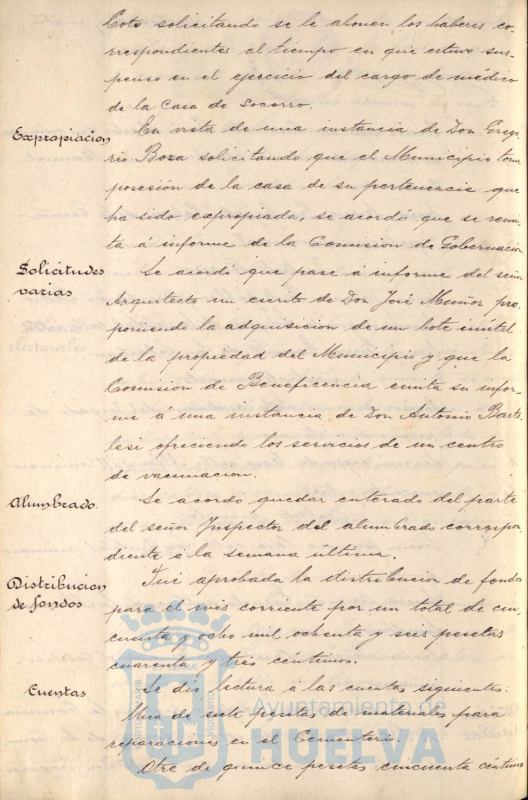 Coto solicitando se le abonen los haberes co-
rrespondientes al tiempo en que estuvo sus-
penso en el ejercicio del cargo de médico
de la Casa de Socorro.
Expropiacion
En vista de una instancia de Don Grego
rio Boza solicitando que el Municipio tome
posesión de la casa de su pertenencia que
ha sido expropiada, se acordó que se remi-
ta á informe de la Comision de Gobernacion
Solicitudes
varias
Se acordó que pase á informe del señor
Arquitecto un escrito de Don José Muñoz pro-
poniendo la adquisicion de un bote inútil
de la propiedad del Municipio y que la
Comision de Beneficencia emita su infor-
me a una instancia de Don Antonio Barto
lesi ofreciendo los servicios de un centro
de vacunacion.
Alumbrado
Se acordó quedar enterado del parte
del señor Inspector del alumbrado correspon-
diente á la semana última.
Distribucion
de fondos
Fué aprobada la distribucion de fondos
para el mes corriente por un total de cin-
cuenta y ocho mil ochenta y seis pesetas
cuarenta y tres céntimos.
Cuentas
Se dió lectura á las cuentas siguientes:
Una de siete pesetas de materiales para
reparaciones en el Cementerio.
Otra de quince pesetas cincuenta céntimos
Ayuntamiento de
HUELVA